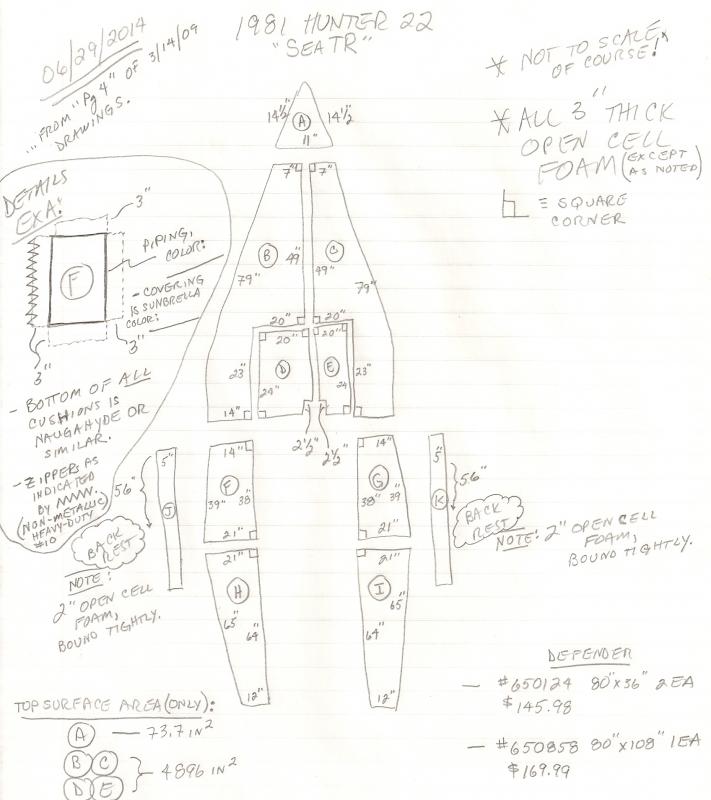 06/29/2014
1981 HUNTER 22
"SEATR"
... FROM "Pg 4" OF 3/14/09
DRAWINGS.
* NOT TO SCALE,
OF COURSE!*
* ALL 3" THICK
OPEN CELL
FOAM (EXCEPT
AS NOTED)
≡ SQUARE
CORNER
14½" A 14½"
11"
DETAILS
EXA:
3"
F
PIPING,
COLOR:
- COVERING
IS SUNBRELLA
COLOR:
3"
3"
- BOTTOM OF ALL
CUSHIONS IS
NAUGAHYDE OR
SIMILAR.
- ZIPPERS AS
INDICATED
BY
(NON-METALLIC)
HEAVY-DUTY
#10
7" 7"
B C
49" 49"
79" 79"
20" 20"
20" 20"
23" D E 23"
24" 24
14"
2½" 2½"
5" 14" 14" 5"
56" F G 56"
39" 38" 38" 39
J K
21" 21"
BACK
REST
NOTE:
2" OPEN CELL
FOAM,
BOUND TIGHTLY.
BACK
REST
NOTE: 2" OPEN CELL
FOAM,
BOUND TIGHTLY.
21" 21"
H I
65" 64" 64" 65"
12" 12"
TOP SURFACE AREA (ONLY):
A — 73.7 IN²
B C
D E } 4896 IN²
DEFENDER
— #650124 80"X36" 2EA
$145.98
— #650858 80"X108" 1EA
$169.99